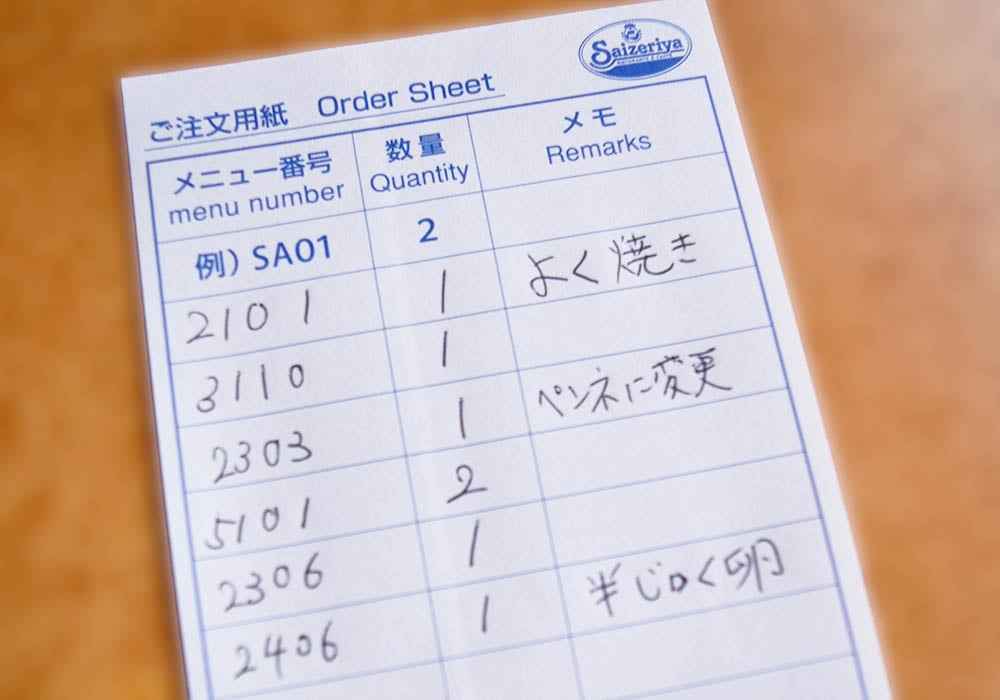 Saizeriya
ご注文用紙 Order Sheet
メニュー番号 数量 メモ
menu number Quantity Remarks
例) SA01 2
2101 1 よく焼き
3110 1
2303 1 ペンネに変更
5101 2
2306 1
2406 1 半じゅく卵